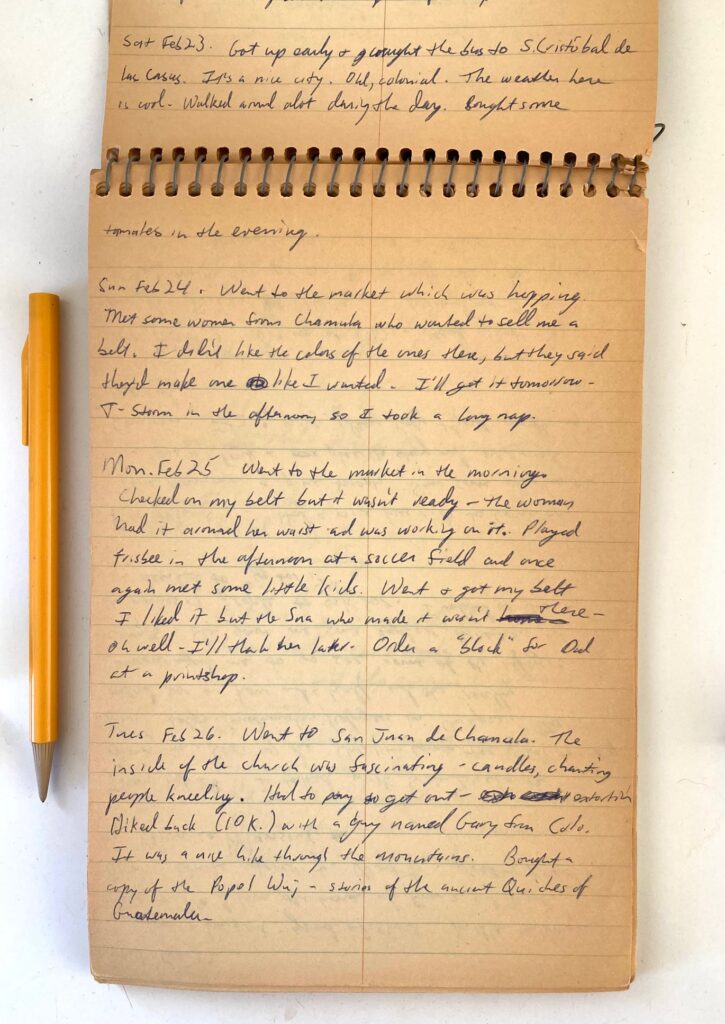 Sat Feb 23. Got up early & caught the bus to S. Cristóbal de
las Casas. It's a nice city. Old, colonial. The weather here
is cool. Walked around alot during the day. Bought some
tamales in the evening.
Sun Feb 24. Went to the market which was hopping.
Met some women from Chamula who wanted to sell me a
belt. I didn't like the colors of the ones there, but they said
they'd make one like I wanted. I'll get it tomorrow -
T-Storm in the afternoon, so I took a long nap.
Mon. Feb 25 Went to the market in the morning.
Checked on my belt but it wasn't ready - the woman
had it around her waist and was working on it. Played
frisbee in the afternoon at a soccer field and once
again met some little kids. Went & got my belt
I liked it but the Sra who made it wasn't there -
oh well - I'll thank her later. Order a "block" for Dad
at a printshop.
Tues Feb 26. Went to San Juan de Chamula. The
inside of the church was fascinating - candles, chanting
people kneeling. Had to pay to get out - extortion
Hiked back (10K.) with a guy named Gary from Colo.
It was a nice hike through the mountains. Bought a
copy of the Popol Wuj - stories of the ancient Quiches of
Guatemala -